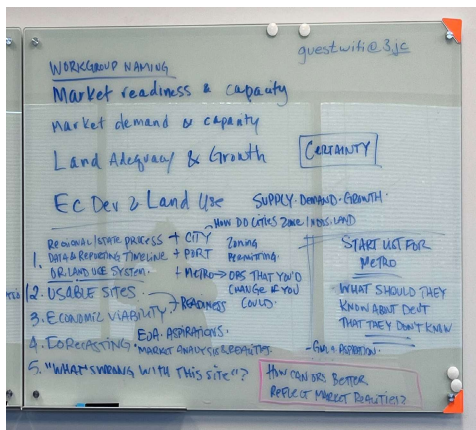 guestwifi@3jc
WORKGROUP NAMING
Market readiness & capacity
market demand & capacity
Land Adequacy & Growth
CERTAINTY
Ec Dev & Land Use
SUPPLY · DEMAND · GROWTH
HOW DO CITIES ZONE INDUS. LAND
1. REGIONAL/STATE PROCESS + CITY Zoning
DATA & REPORTING TIMELINE + PORT PERMITTING
OR. LAND USE SYSTEM + METRO → OPS THAT YOU'D
CHANGE IF YOU
COULD.
2. USABLE SITES
→ READINESS
3. ECONOMIC VIABILITY
EOA · ASPIRATIONS.
4. FORECASTING · MARKET ANALYSIS & REALITIES.
5. "WHAT'S WRONG WITH THIS SITE"?
START LIST FOR
METRO
WHAT SHOULD THEY
KNOW ABOUT
THAT THEY DON'T KNOW
ASPIRATION.
HOW CAN BETTER
REFLECT MARKET REALITIES?